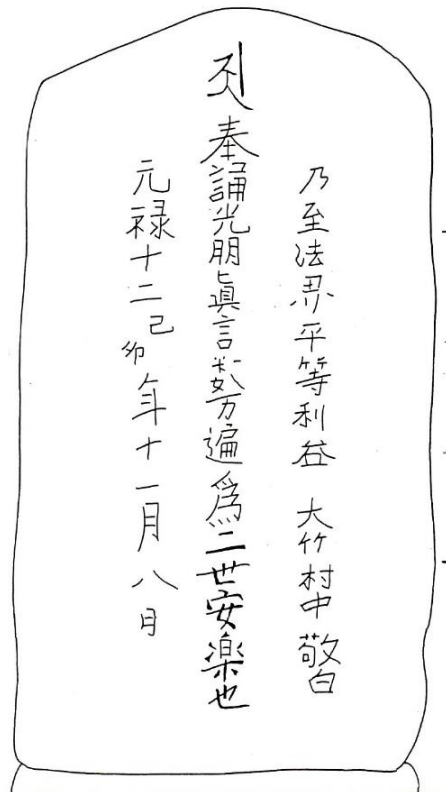 乃至法界平等利益　大竹村中　敬白
奉誦光明眞言数万遍爲二世安楽也
元禄十二己卯年十一月八日